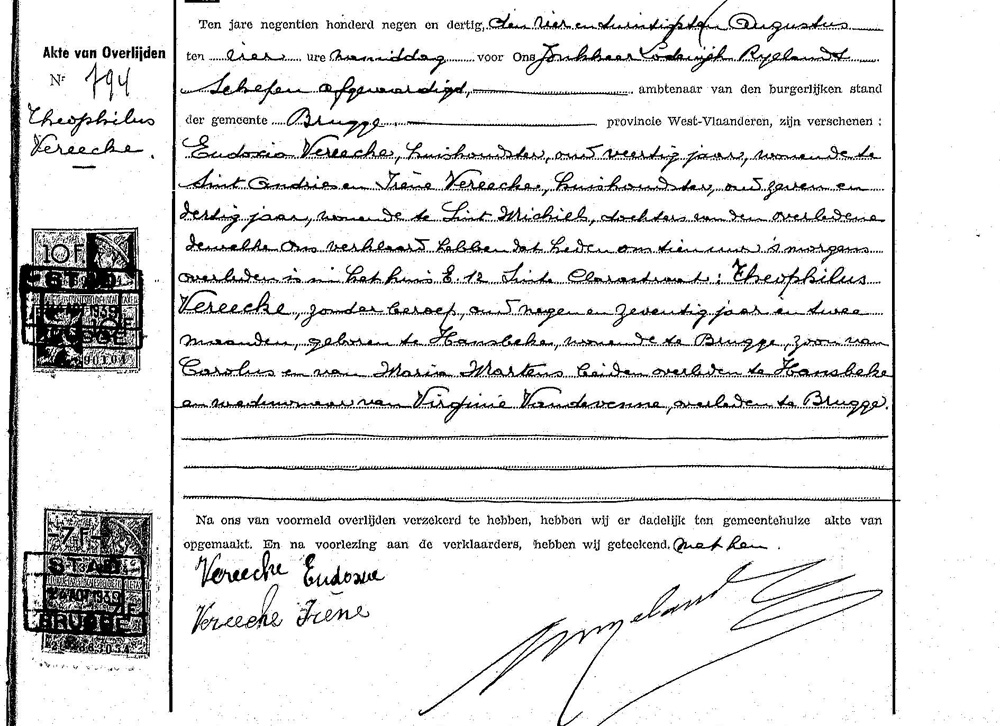 Akte van Overlijden
Nr 794
Theophilus
Vereecke.
Ten jare negentien honderd negen en dertig, den vier en twintigsten Augustus
ten vier ure namiddag voor Ons Jonkheer Lodewijk Ryelandt
Schepen afgevaardigd, ambtenaar van den burgerlijken stand
der gemeente Brugge, provincie West-Vlaanderen, zijn verschenen :
Eudoxia Vereecke, huishoudster, oud veertig jaar, wonende te
Sint Andries en Irène Vereecke, huishoudster, oud zeven en
dertig jaar, wonende te Sint Michiels, dochters van den overledene
dewelke ons verklaard hebben dat heden om tien uur 's morgens
overleden is in het huis E. 12 Sinte Clarastraat : Theophilus
Vereecke, zonder beroep, oud negen en zeventig jaar en twee
maanden, geboren te Hansbeke, wonende te Brugge, zoon van
Carolus en van Maria Martens beiden overleden te Hansbeke
en weduwnaar van Virginie Vandevenne, overleden te Brugge.
Na ons van voormeld overlijden verzekerd te hebben, hebben wij er dadelijk ten gemeentehuize akte van
opgemaakt. En na voorlezing aan de verklaarders, hebben wij geteekend, met hen.
Vereecke Eudoxie
Vereecke Irène
10 F
STAD
1939
BRUGGE
-7F-
STAD
24 AOT 1939
BRUGGE